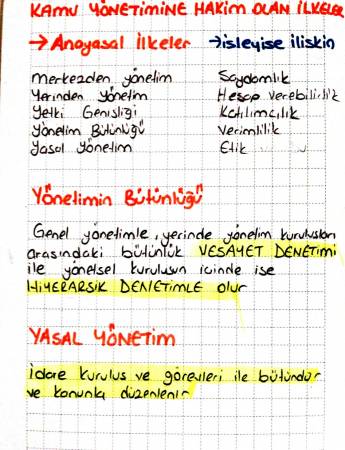 KAMU YÖNETİMİNE HAKİM OLAN İLKELER
→Anayasal İlkeler →işleyişe ilişkin
Merkezden yönetim Saydamlık
Yerinden Yönetim Hesap verebilirlik
Yetki Genişliği Katılımcılık
Yönetim Bütünlüğü Verimlilik
Yasal Yönetim Etik
Yönetimin Bütünlüğü
Genel yönetimle, yerinde yönetim kuruluşları
arasındaki bütünlük VESAYET DENETİMİ
ile yönetsel kuruluşun içinde ise
HİYERARŞİK DENETİMLE olur
YASAL YÖNETİM
İdare kuruluş ve görevleri ile bütündür
ve kanunla düzenlenir